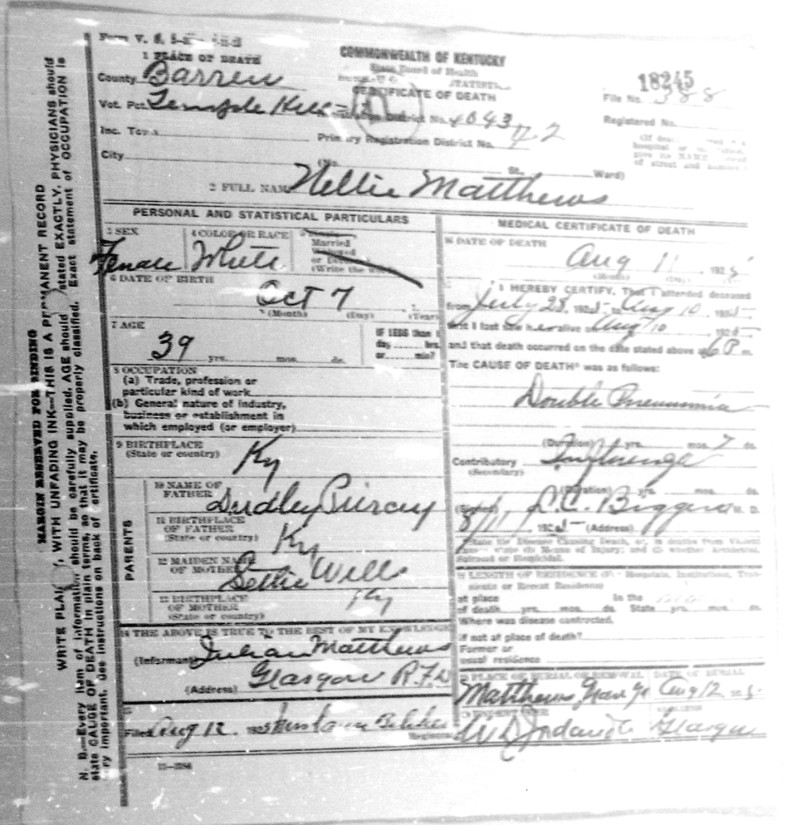 1 PLACE OF DEATH
COMMONWEALTH OF KENTUCKY
State Board of Health
CERTIFICATE OF DEATH
18245
County Barren
File No. 388
Vot. Pct. Temple Hill
District No. 4043
Registered No.
Inc. Town
Primary Registration District No.
City
(No. St., Ward)
2 FULL NAME Nellie Matthews
PERSONAL AND STATISTICAL PARTICULARS
3 SEX
Female
4 COLOR OR RACE
White
Married
(Write the
6 DATE OF BIRTH
Oct 7
(Month) (Day) (Year)
7 AGE
39 yrs. mos. ds.
IF LESS than 1
day hrs.
or min?
8 OCCUPATION
(a) Trade, profession or
particular kind of work
(b) General nature of industry,
business or establishment in
which employed (or employer)
9 BIRTHPLACE
(State or country)
Ky
PARENTS
10 NAME OF
FATHER
Dudley Piercy
11 BIRTHPLACE
OF FATHER
(State or country)
Ky
12 MAIDEN NAME
OF MOTHER
Bettie Wells
13 BIRTHPLACE
OF MOTHER
(State or country)
Ky
14 THE ABOVE IS TRUE TO THE BEST OF MY KNOWLEDGE
(Informant) Julian Matthews
(Address) Glasgow R.F.D
Filed Aug 12. 192
MEDICAL CERTIFICATE OF DEATH
16 DATE OF DEATH
Aug 11 192
(Month) (Day)
I HEREBY CERTIFY, That I attended deceased
from July 28 192 to Aug 10 192
that I last saw her alive Aug 10 192
and that death occurred on the date stated above at 6 P m.
The CAUSE OF DEATH* was as follows:
Double Pneumonia
(Duration) yrs. mos. 7 ds.
Contributory Influenza
(Secondary)
(Duration) yrs. mos. ds.
(Signed) Biggers M. D.
8/11 192 (Address)
State the Disease Causing Death, or, in deaths from Violent
state (1) Means of Injury; and (2) whether Accidental,
Suicidal or Homicidal.
18 LENGTH OF RESIDENCE (For Hospitals, Institutions, Transients
or Recent Residents)
At place In the
of death yrs. mos. ds. State yrs. mos. ds.
Where was disease contracted,
if not at place of death?
Former or
usual residence
19 PLACE OF BURIAL OR REMOVAL DATE OF BURIAL
Matthews Grave Yd Aug 12 192
Glasgow
MARGIN RESERVED FOR BINDING
WRITE PLAINLY, WITH UNFADING INK—THIS IS A PERMANENT RECORD
N. B.—Every item of information should be carefully supplied. AGE should be stated EXACTLY. PHYSICIANS should
state CAUSE OF DEATH in plain terms, so that it may be properly classified. Exact statement of OCCUPATION is
very important. See instructions on back of certificate.